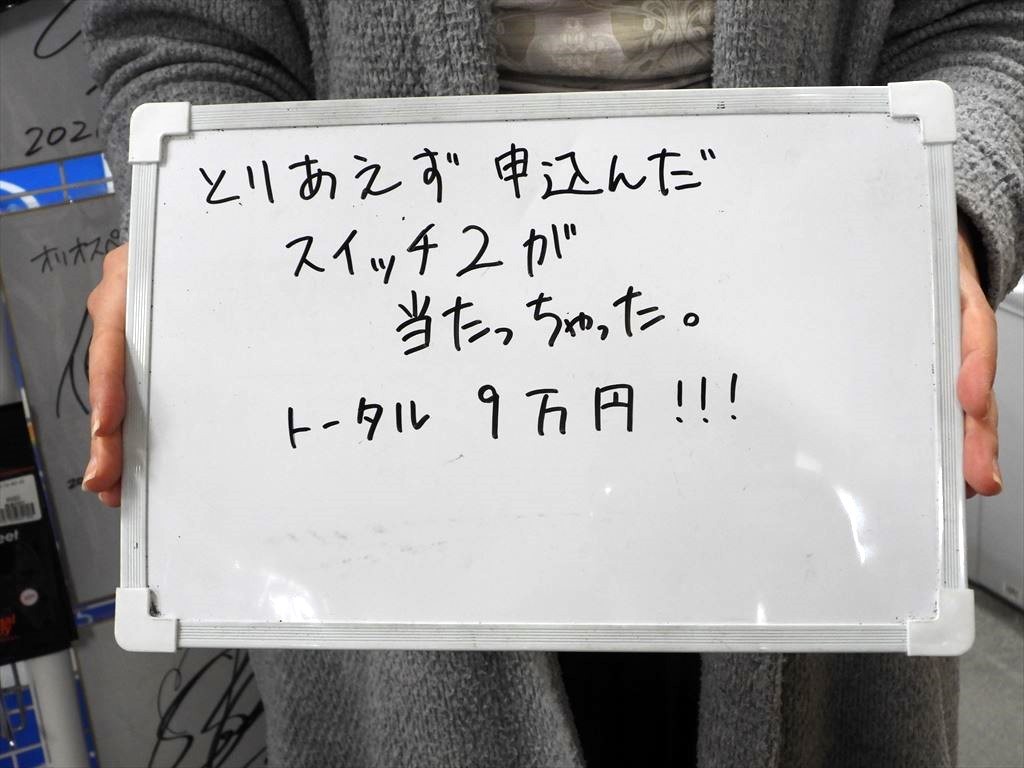 とりあえず 申込んだ
スイッチ2が
当たっちゃった。
トータル 9万円 !!!
202
オリオスペ